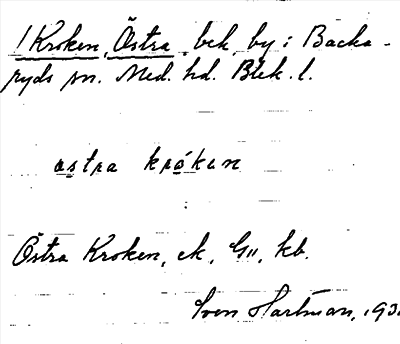 /Kroken, Östra, bek. by i Backa-
ryds sn. Med. hd. Blek. l.
östra krokan
Östra Kroken, ek, G11, kb.
Sven Hartman, 193